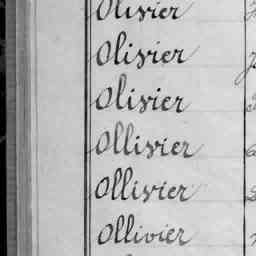 Olivier
Olivier
Olivier
Ollivier
Ollivier
Ollivier